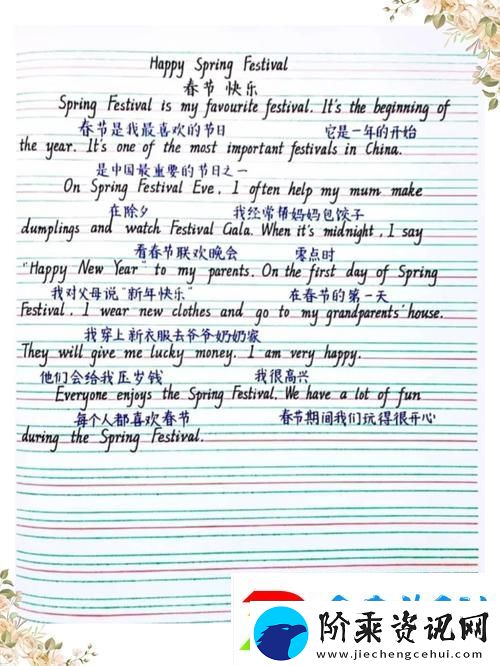 Happy Spring Festival
春节 快乐
Spring Festival is my favourite festival. It's the beginning of
春节是我最喜欢的节日 它是一年的开始
the year. It's one of the most important festivals in China.
是中国最重要的节日之一
On Spring Festival Eve, I often help my mum make
在除夕 我经常帮妈妈包饺子
dumplings and watch Festival Gala. When it's midnight, I say
看春节联欢晚会 零点时
"Happy New Year" to my parents. On the first day of Spring
我对父母说"新年快乐" 在春节的第一天
Festival, I wear new clothes and go to my grandparents' house.
我穿上新衣服去爷爷奶奶家
They will give me lucky money. I am very happy.
他们会给我压岁钱 我很高兴
Everyone enjoys the Spring Festival. We have a lot of fun
每个人都喜欢春节 春节期间我们玩得很开心
during the Spring Festival.
阶乘资讯网
www.jiechengcehui.com